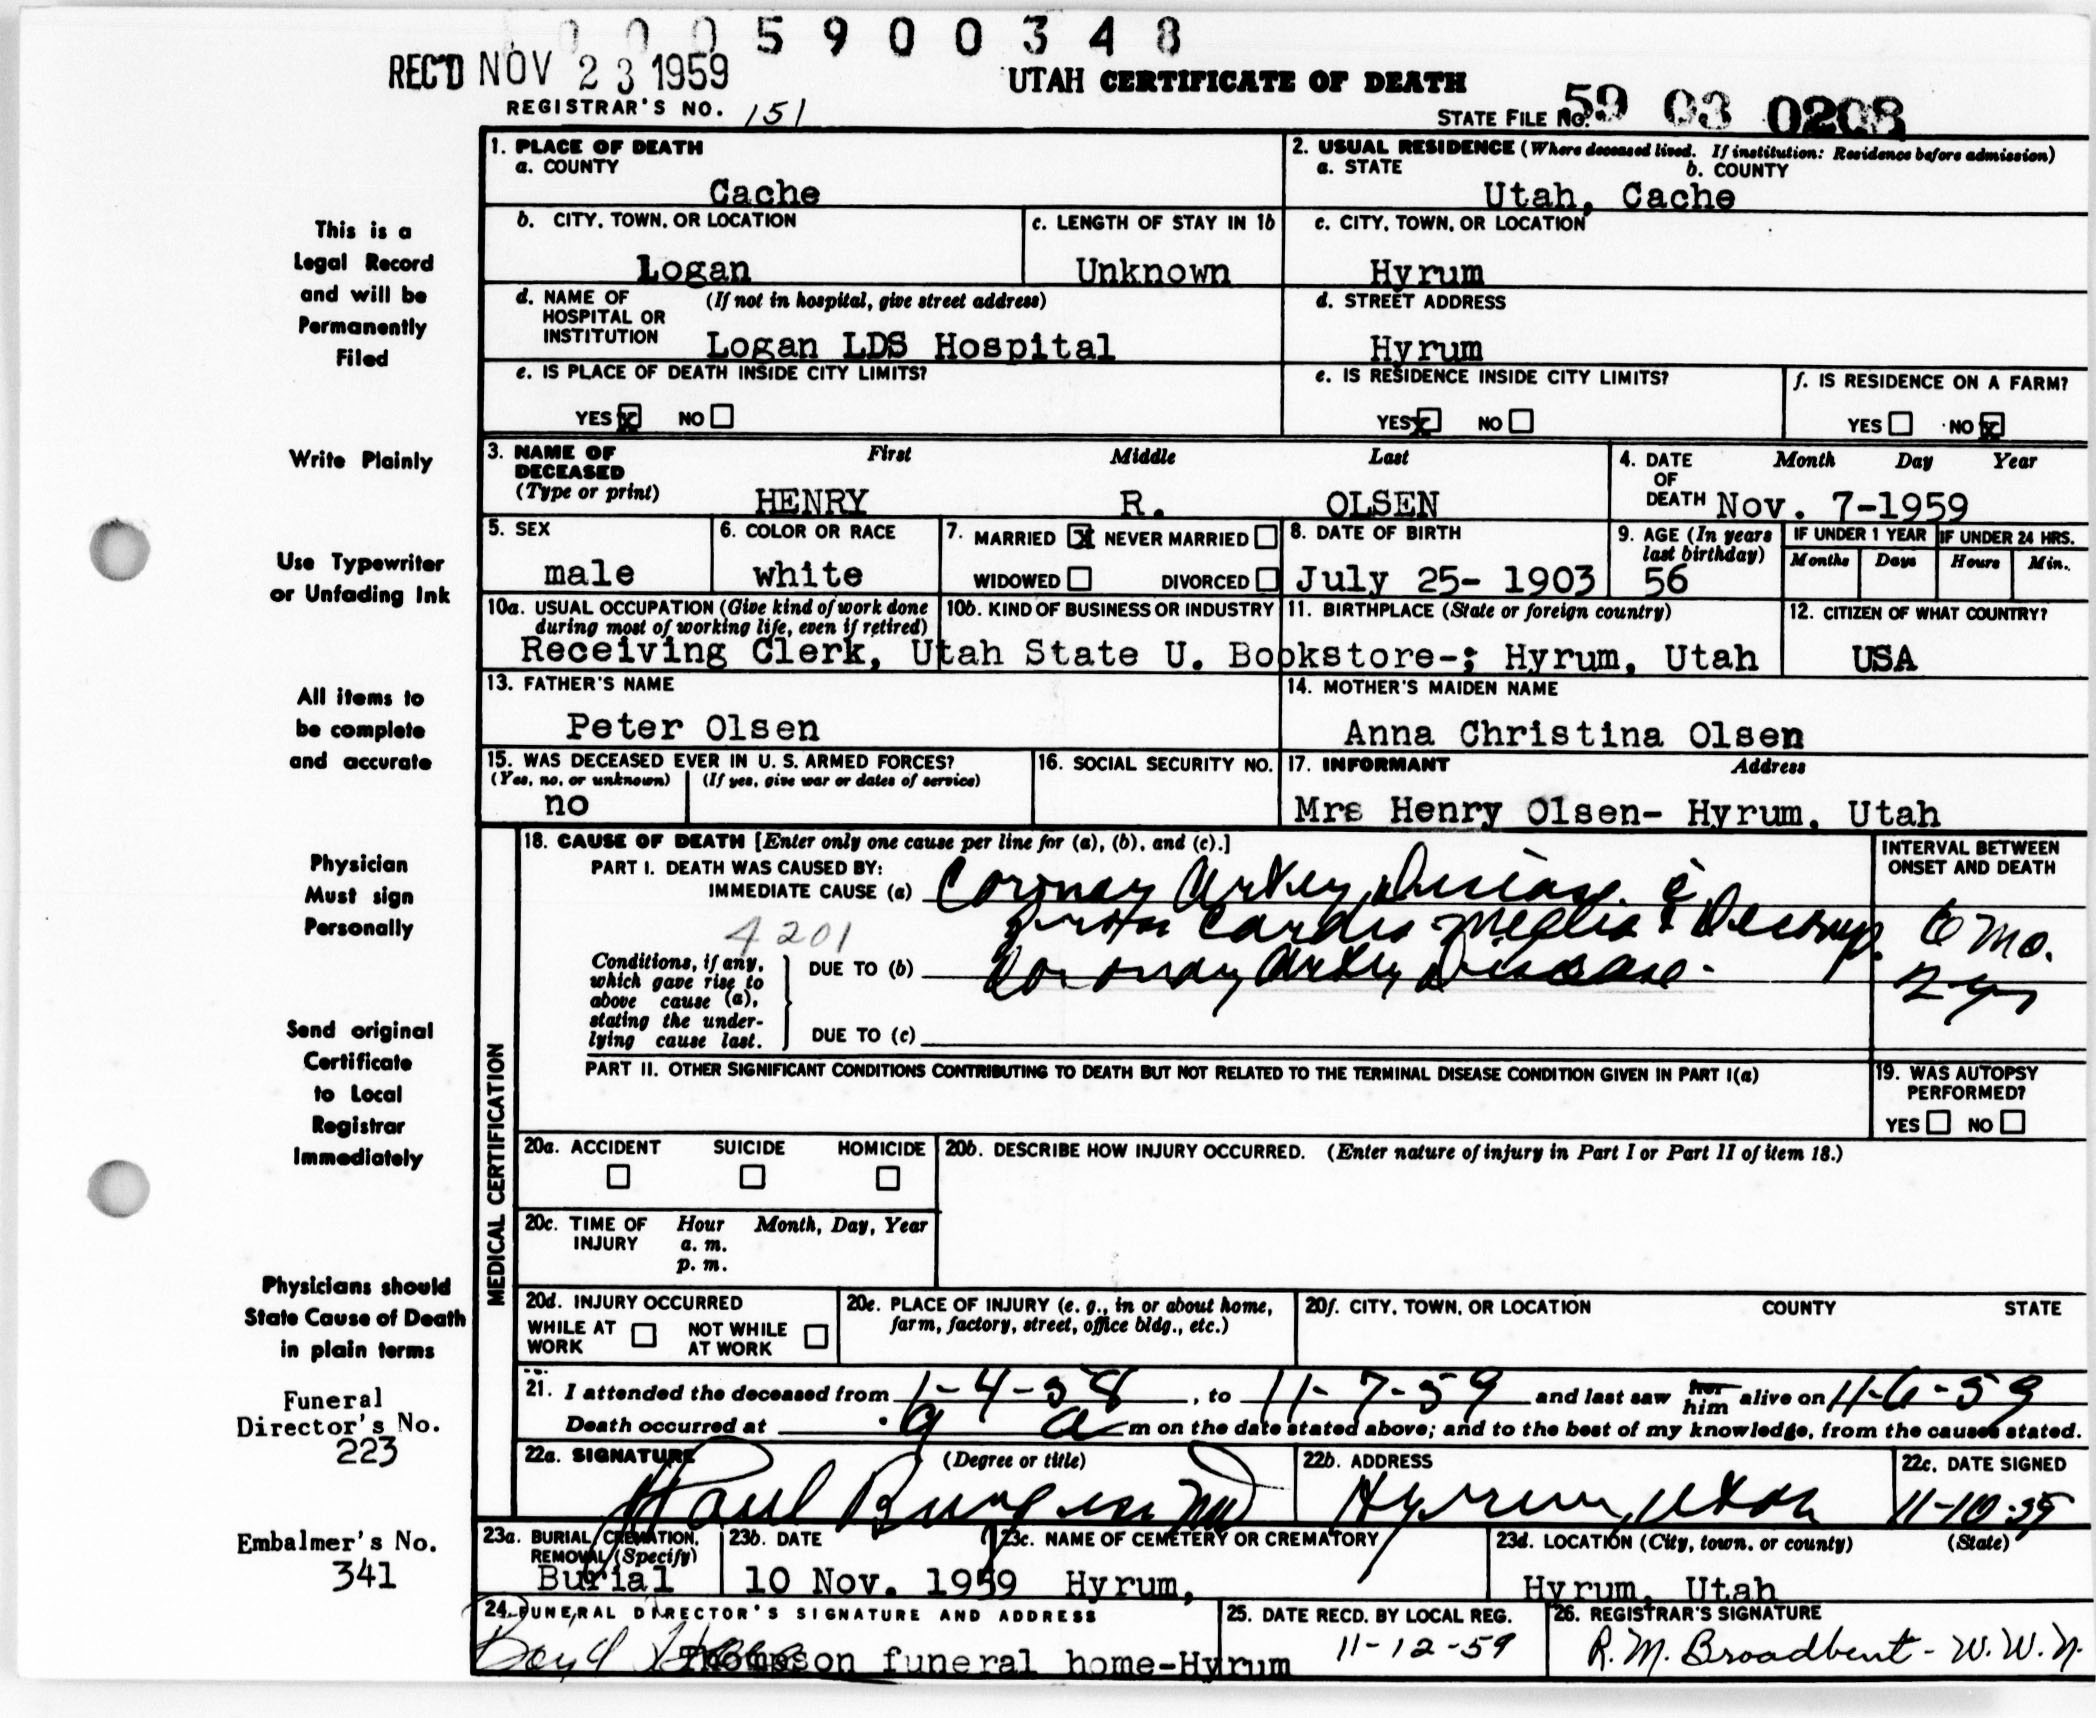 0 0 0 5 9 0 0 3 4 8
REC'D NOV 23 1959
UTAH CERTIFICATE OF DEATH
REGISTRAR'S NO. 151
STATE FILE No. 59 03 0208
1. PLACE OF DEATH
a. COUNTY
Cache
2. USUAL RESIDENCE (Where deceased lived. If institution: Residence before admission)
a. STATE b. COUNTY
Utah, Cache
b. CITY, TOWN, OR LOCATION
Logan
c. LENGTH OF STAY IN 1b
Unknown
c. CITY, TOWN, OR LOCATION
Hyrum
d. NAME OF HOSPITAL OR INSTITUTION (If not in hospital, give street address)
Logan LDS Hospital
d. STREET ADDRESS
Hyrum
e. IS PLACE OF DEATH INSIDE CITY LIMITS?
YES x NO
e. IS RESIDENCE INSIDE CITY LIMITS?
YES x NO
f. IS RESIDENCE ON A FARM?
YES NO x
3. NAME OF DECEASED (Type or print)
First Middle Last
HENRY R. OLSEN
4. DATE OF DEATH Month Day Year
Nov. 7-1959
5. SEX
male
6. COLOR OR RACE
white
7. MARRIED X NEVER MARRIED
WIDOWED DIVORCED
8. DATE OF BIRTH
July 25- 1903
9. AGE (In years last birthday)
56
IF UNDER 1 YEAR
Months Days
IF UNDER 24 HRS.
Hours Min.
10a. USUAL OCCUPATION (Give kind of work done during most of working life, even if retired)
10b. KIND OF BUSINESS OR INDUSTRY
11. BIRTHPLACE (State or foreign country)
12. CITIZEN OF WHAT COUNTRY?
Receiving Clerk, Utah State U. Bookstore-; Hyrum, Utah USA
13. FATHER'S NAME
Peter Olsen
14. MOTHER'S MAIDEN NAME
Anna Christina Olsen
15. WAS DECEASED EVER IN U. S. ARMED FORCES?
(Yes, no, or unknown) (If yes, give war or dates of service)
no
16. SOCIAL SECURITY NO.
17. INFORMANT Address
Mrs Henry Olsen- Hyrum, Utah
MEDICAL CERTIFICATION
18. CAUSE OF DEATH [Enter only one cause per line for (a), (b), and (c).]
PART I. DEATH WAS CAUSED BY:
IMMEDIATE CAUSE (a) Coronary Artery Disease
Cardio-meglia & Decomp.
4201
Conditions, if any, which gave rise to above cause (a), stating the underlying cause last.
DUE TO (b) Coronary Artery Disease.
DUE TO (c)
INTERVAL BETWEEN ONSET AND DEATH
6 Mo.
2 yr
PART II. OTHER SIGNIFICANT CONDITIONS CONTRIBUTING TO DEATH BUT NOT RELATED TO THE TERMINAL DISEASE CONDITION GIVEN IN PART I(a)
19. WAS AUTOPSY PERFORMED?
YES NO
20a. ACCIDENT SUICIDE HOMICIDE
20b. DESCRIBE HOW INJURY OCCURRED. (Enter nature of injury in Part I or Part II of item 18.)
20c. TIME OF INJURY Hour Month, Day, Year
a. m.
p. m.
20d. INJURY OCCURRED
WHILE AT WORK NOT WHILE AT WORK
20e. PLACE OF INJURY (e. g., in or about home, farm, factory, street, office bldg., etc.)
20f. CITY, TOWN, OR LOCATION COUNTY STATE
21. I attended the deceased from 1-4-58, to 11-7-59 and last saw her him alive on 11-6-59
Death occurred at 9 a m on the date stated above; and to the best of my knowledge, from the causes stated.
22a. SIGNATURE (Degree or title)
Paul Burgess MD
22b. ADDRESS
Hyrum, Utah
22c. DATE SIGNED
11-10-59
23a. BURIAL, CREMATION, REMOVAL (Specify)
Burial
23b. DATE
10 Nov. 1959
23c. NAME OF CEMETERY OR CREMATORY
Hyrum,
23d. LOCATION (City, town, or county) (State)
Hyrum, Utah
24. FUNERAL DIRECTOR'S SIGNATURE AND ADDRESS
Boyd
Thompson funeral home-Hyrum
25. DATE RECD. BY LOCAL REG.
11-12-59
26. REGISTRAR'S SIGNATURE
R. M. Broadbent - W. W. N.
This is a
Legal Record
and will be
Permanently
Filed
Write Plainly
Use Typewriter
or Unfading Ink
All items to
be complete
and accurate
Physician
Must sign
Personally
Send original
Certificate
to Local
Registrar
Immediately
Physicians should
State Cause of Death
in plain terms
Funeral
Director's No.
223
Embalmer's No.
341